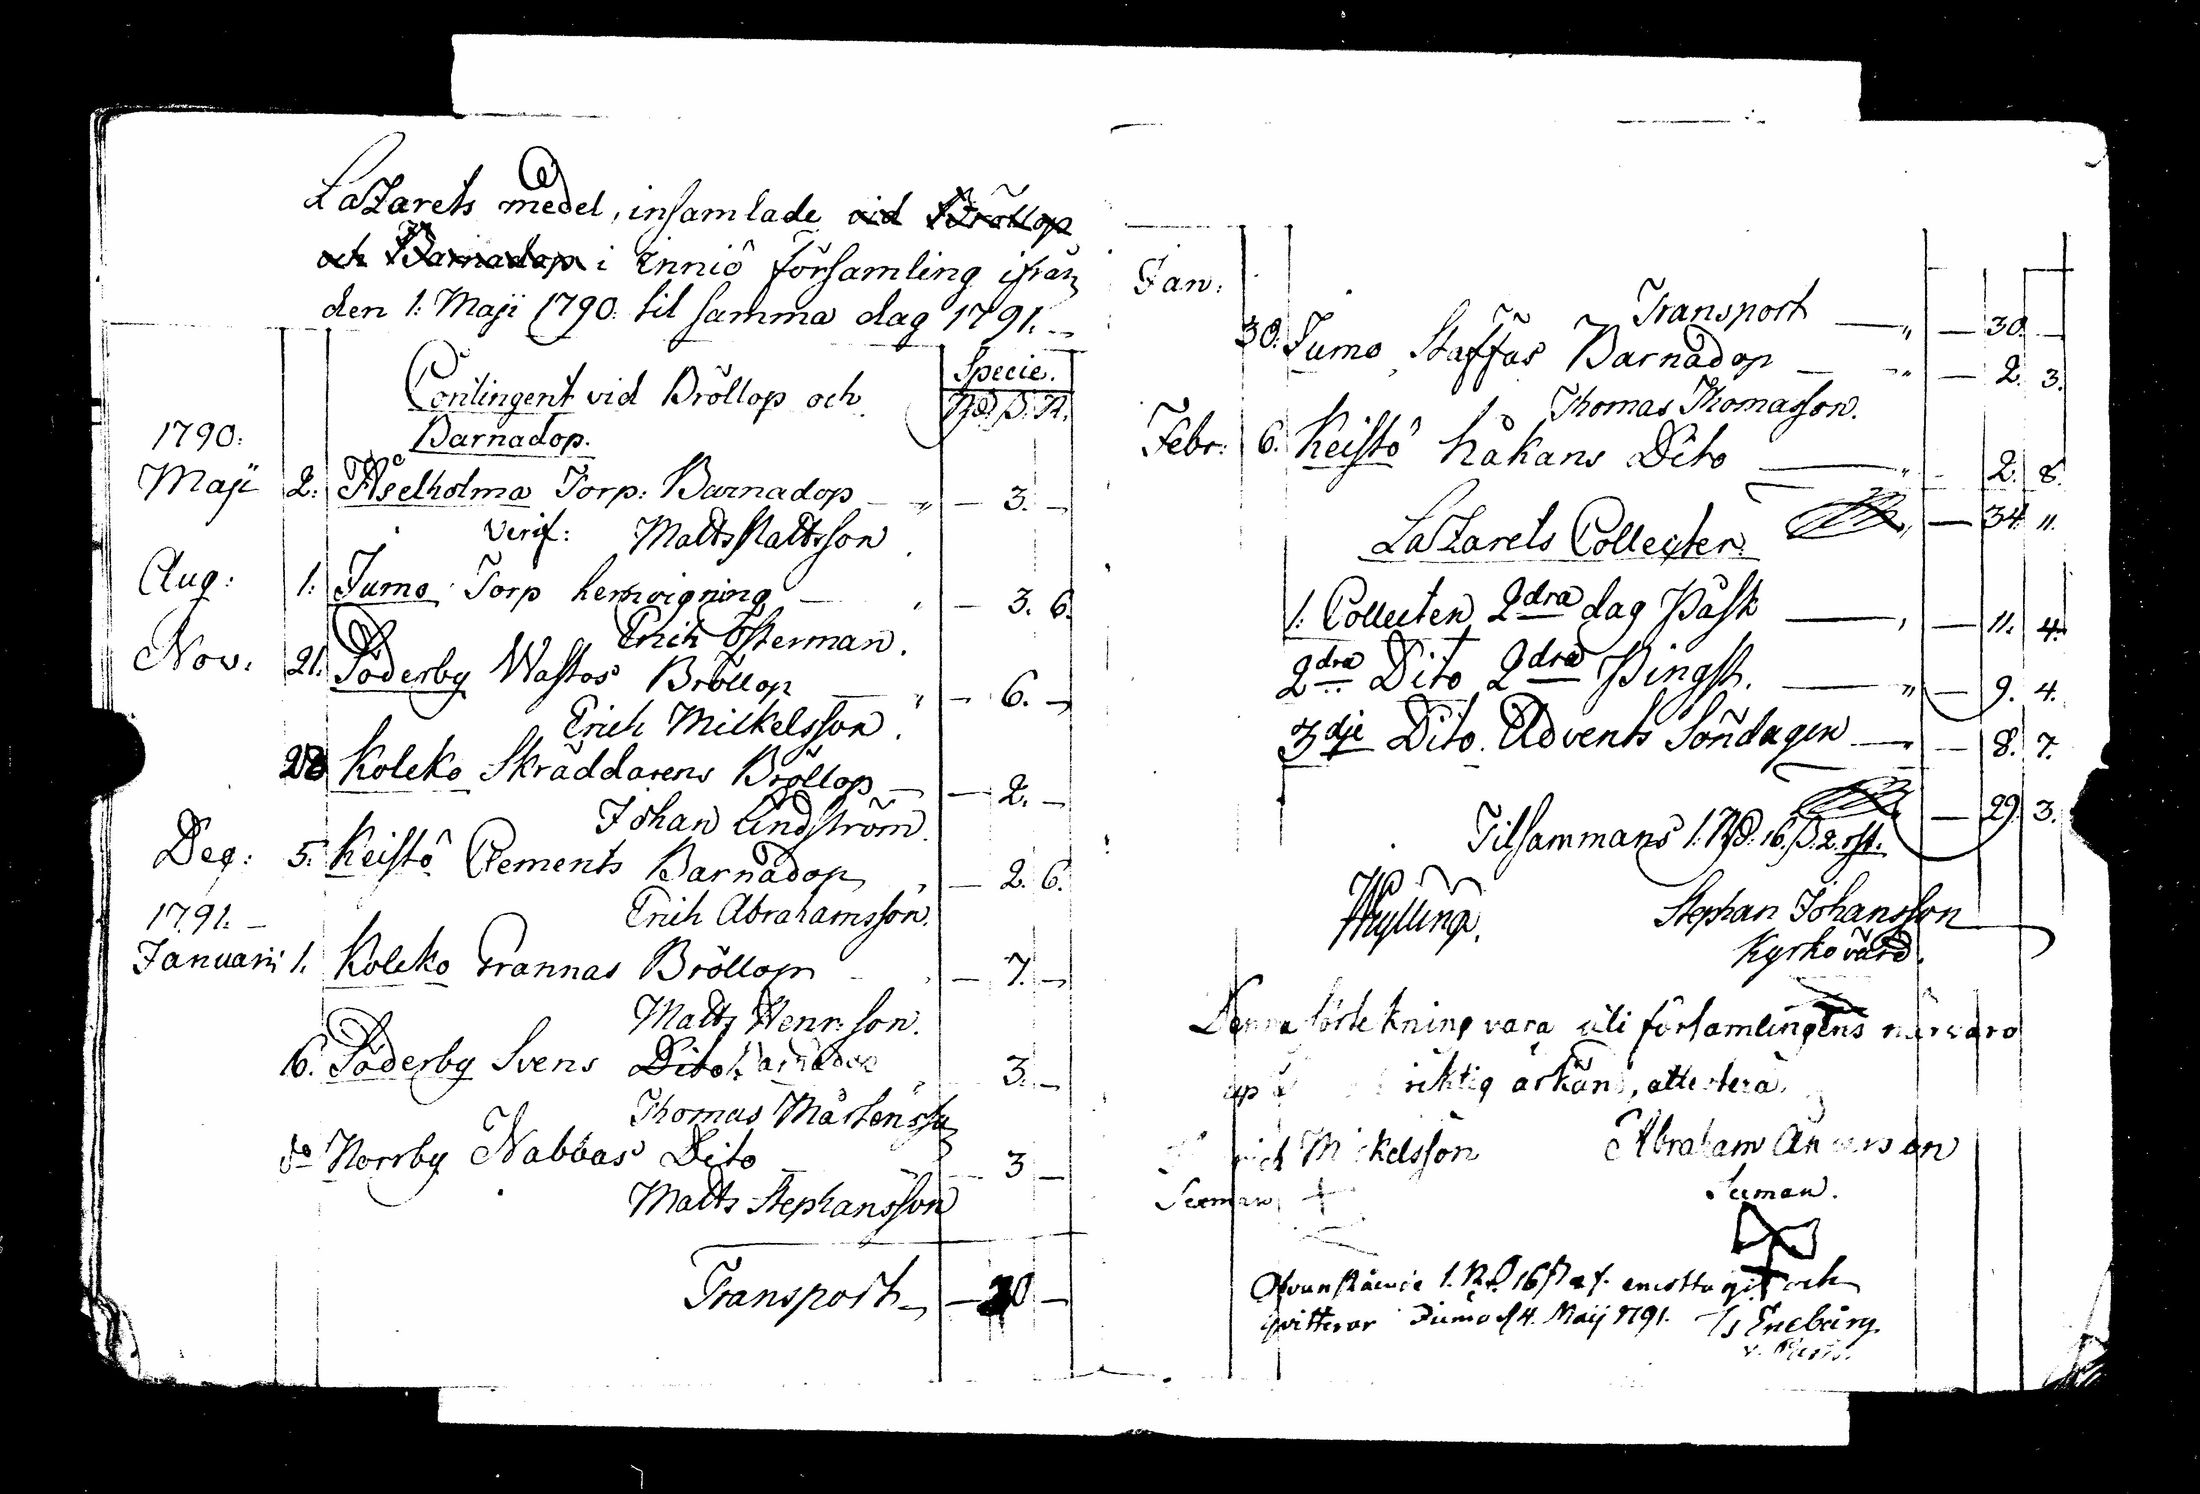 Lazarets medel, insamlade vid Bröllop
och Barnadop i Inniö församling ifrån
den 1: Maji 1790. til samma dag 1791.
Contingent vid Bröllop och
Barnadop.
Specie.
Rd. ß. R.
1790.
Maji 2. Åselholma Torp: Barnadop — " — 3. —
Verif: Matts Mattsson
Aug: 1. Jumo Torp hemvigning — " — 3. 6.
Erich Österman.
Nov. 21. Söderby Wastos Bröllop — " — 6. —
Erich Mickelsson.
28 Koleko Skräddarens Bröllop — — 2. —
Johan Lindström.
Dec: 5. Keistö Clements Barnadop " — 2. 6.
Erich Abrahamsson.
1791. —
Januarii 1. Koleko Grannas Bröllop — 7. —
Matts Henr:son.
6. Söderby Svens Dito Barnadop " 3. —
Thomas Mårtensson
do Norrby Nabbas Dito — 3 —
Matts Stephansson
Transport — — 30 —
Jan:
Transport — " — 30. —
30. Jumo Staffas Barnadop — " — 2. 3.
Thomas Thomasson.
Febr: 6. Keistö håkans Dito — " — 2. 8.
— 34. 11.
Lazarets Collecter.
1. Collecten 2dra dag Påsk — " — 11. 4.
2dra Dito 2dra Pingst. — " — 9. 4.
3dje Dito. Advents Söndagen — " — 8. 7.
— 29. 3.
Tilsammans 1. Rd. 16. ß. 2. rst.
Stephan Johansson
Kyrkovärd.
Denna förtekning vara uti församlingens närvaro
riktig ärkänd, attestera
Mickelsson Abraham Andersson
Sexman + Sexman.
Ofvanstående 1. Rd 16 ß 2 r. emottagit och
qvitterar Jumo d 4. Maij 1791. Is Eneberg